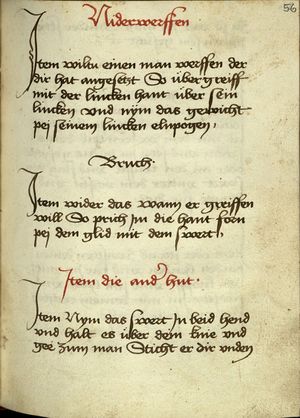 56
Niderwerffen
Item wiltu einen man werffen der
dir hat angesetzt So übergreiff
mit der lincken hant über sein
lincken vnd nym das gewicht
pei seinem lincken elnpogen ,
Bruch ·
Item wider das wann er greiffen
will So prich jn die hant forn
pei dem glid mit dem swert ,
Item die ander hut ·
Item Nym das swert jn beid hend
vnd halt es über dem knie vnd
gee zum man Sticht er dir vnden